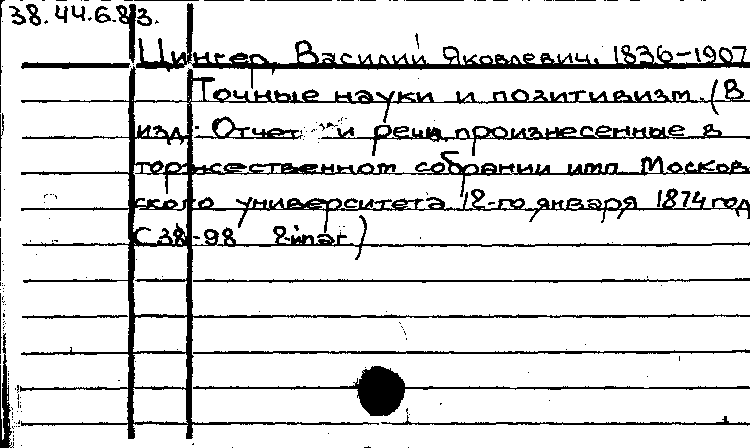 38.44.6.83.
Цингер, Василий Яковлевич. 1836-1907
Точные науки и позитивизм (В
изд: Отчет и речи, произнесенные в
торжественном собрании имп Москов
ского университета 12-го января 1874 год
С 38-98 2-й паг)